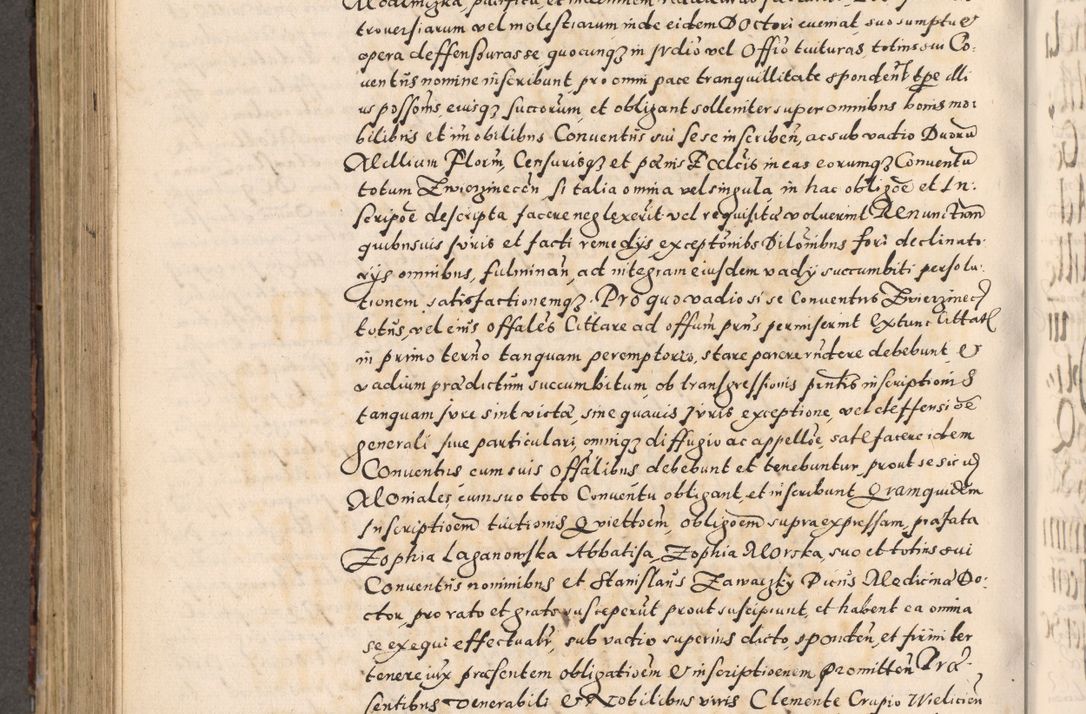 troversiarum vel molestiarum inde eidem Doctori eveniat suo sumptu et
opera deffensuras se quocunqz in Judio vel Offio tuituras totius sui Co:
ventus nomine inscribunt, pro omni pace tranquillitate spondent tpe illi
us possonis, eiusqz succorum, et obligant solleniter super omnibus bonis mo:
bilibus et imobilibus Conventus sui sese inscriben, ac sub vadio Duoru
Millium Floru, Censurisqz et pœnis Ecclcis in eas eorumqz Conventu
totum Zwierzinecen si talia omnia vel singula in hac obligoe et In:
scripoe descripta facere neglexerit vel requisitæ voluerint Renunctian
quibusvis Juris et facti remedys, exceptonibs Dilonibus fori declinato
rys omnibus, fulminan, ad integram eiusdem vady succumbiti persolu:
tionem satisfactionemqz. Pro quo vadio si se Conventus Zwierzinec
totus, vel eius offales Cittare ad offum prius permiserint extunc Cittati
in primo terno tanquam peremptorio, stare parere rndere debebunt, et
vadium prædictum succumbitum ob transgressionis pentis inscriptionis
tanquam jure sint victæ, sine quavis Juris exceptione, vel deffensioe
generali sive particulari, omniqz diffugio ac appelloe, satlfacere idem
Conventus cum suis offalibus debebunt et tenebuntur, prout se sic
Moniales cum suo toto Conventu obligant, et inscribunt Qramquidem
Inscriptioem tuitionis Quiettoem, obligoem supra expressam, præfata
Zophia Laganowska Abbatisa, Zophia Morska, suo et totius sui
Conventus nominibus et Stanislaus Zawaczky Dictus Medicinæ Do:
ctor, pro rato et grato susceperut prout suscipiunt, et habent ea omnia
se exequi effectuatr, sub vadio superius dicto, sponden, et firmiter
tenere jux præsentem obligatioem et inscriptionem Promitten Præ:
sentibus Venerabili et Nobilibus viris Clemente Crupio Wielicien